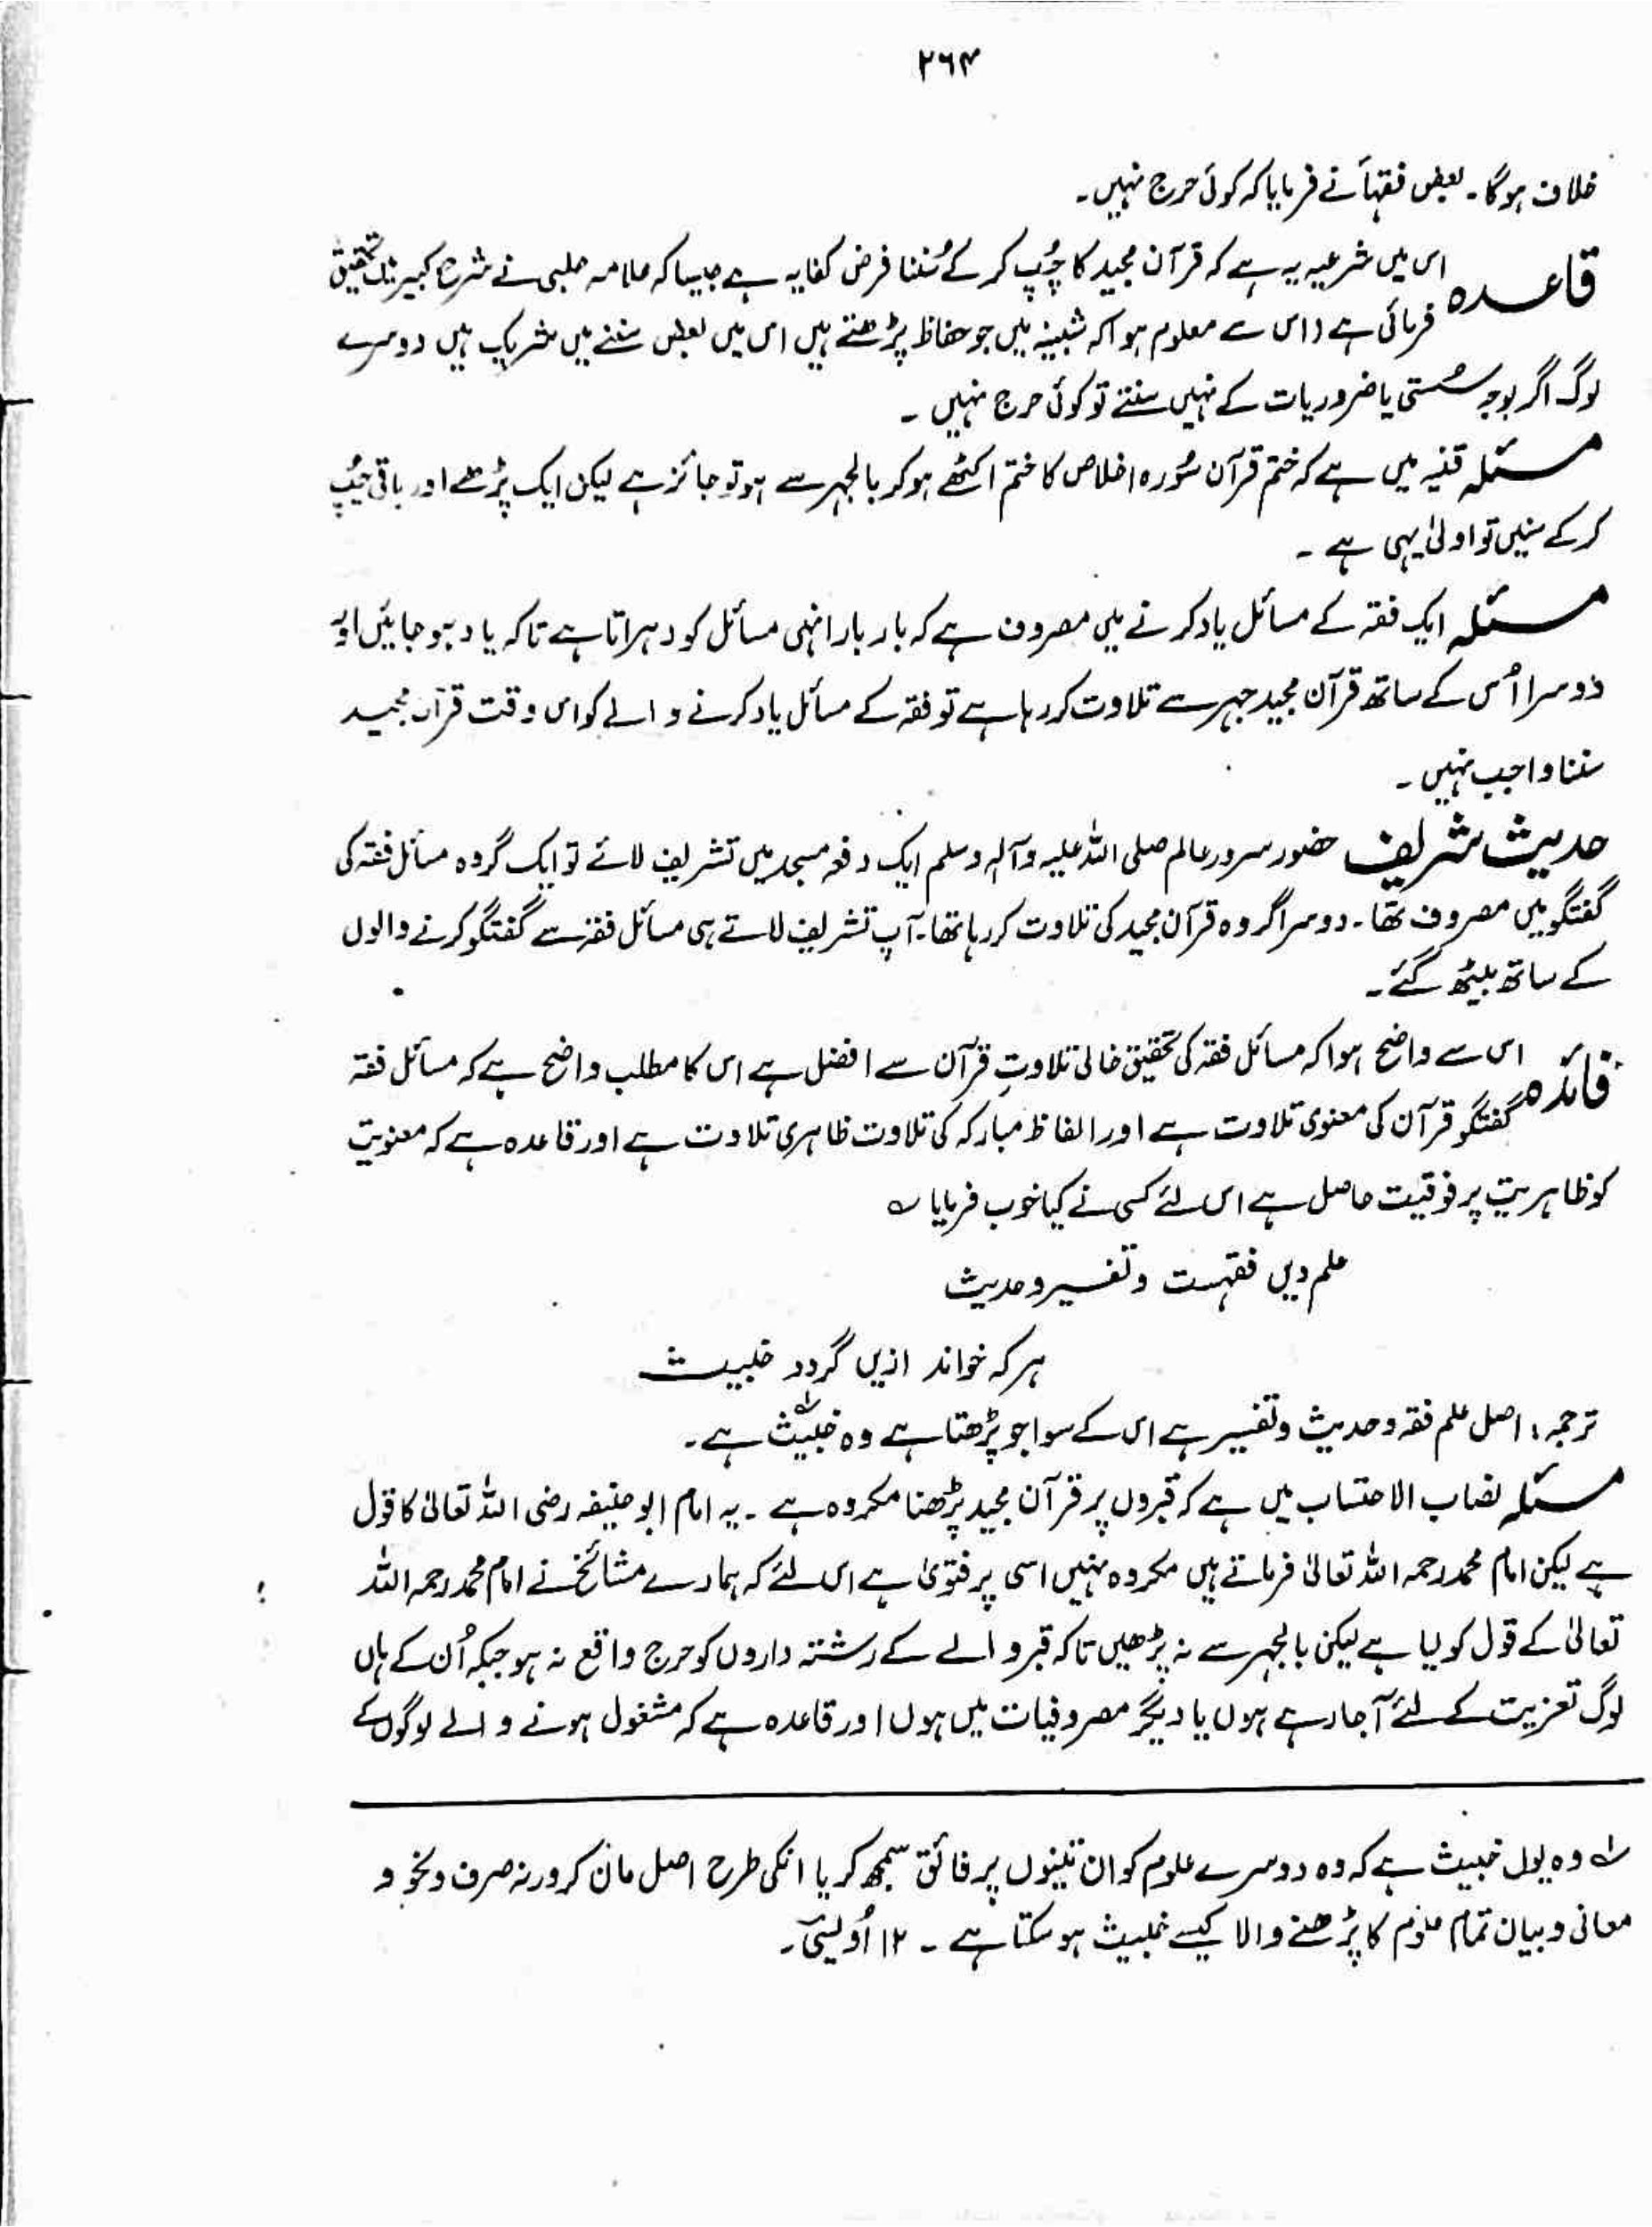 ۲۶۴
خلاف ہوگا۔ بعض فقہاَ نے فرمایا کہ کوئی حرج نہیں۔
قاعدہ اس میں شرعیہ یہ ہے کہ قرآن مجید کا چُپ کر کے سُننا فرض کفایہ ہے جیسا کہ علامہ حلبی نے شرح کبیر میں تحقیق
فرمائی ہے (اس سے معلوم ہوا کہ شبینہ میں جو حفاظ پڑھتے ہیں اس میں بعض سننے میں شریک ہیں دوسرے
لوگ اگر بوجہ سُستی یا ضروریات کے نہیں سنتے تو کوئی حرج نہیں ۔
مسئلہ قنیہ میں ہے کہ ختم قرآن سُورہ اخلاص کا ختم اکٹھے ہو کر بالجہر سے ہو تو جائز ہے لیکن ایک پڑھے اور باقی چُپ
کر کے سنیں تو اولیٰ یہی ہے ۔
مسئلہ ایک فقہ کے مسائل یاد کرنے میں مصروف ہے کہ بار بار انہی مسائل کو دہراتا ہے تاکہ یاد ہو جائیں اور
دوسرا اُس کے ساتھ قرآن مجید جہر سے تلاوت کر رہا ہے تو فقہ کے مسائل یاد کرنے والے کو اس وقت قرآن مجید
سننا واجب نہیں ۔
حدیث شریف حضور سرور عالم صلی اللہ علیہ وآلہ وسلم ایک دفعہ مسجد میں تشریف لائے تو ایک گروہ مسائل فقہ کی
گفتگو میں مصروف تھا۔ دوسرا گروہ قرآن مجید کی تلاوت کر رہا تھا۔ آپ تشریف لاتے ہی مسائل فقہ سے گفتگو کرنے والوں
کے ساتھ بیٹھ گئے۔
فائدہ اس سے واضح ہوا کہ مسائل فقہ کی تحقیق خالی تلاوتِ قرآن سے افضل ہے اس کا مطلب واضح ہے کہ مسائل فقہ
گفتگو قرآن کی معنوی تلاوت ہے اور الفاظ مبارکہ کی تلاوت ظاہری تلاوت ہے اور قاعدہ ہے کہ معنویت
کو ظاہریت پر فوقیت حاصل ہے اس لئے کسی نے کیا خوب فرمایا ؎
علم دیں فقہست و تفسیر و حدیث
ہر کہ خواند ازیں گردد خبیث
ترجمہ: اصل علم فقہ و حدیث و تفسیر ہے اس کے سوا جو پڑھتا ہے وہ خبیث ؎ ہے۔
مسئلہ نصاب الاحتساب میں ہے کہ قبروں پر قرآن مجید پڑھنا مکروہ ہے ۔ یہ امام ابو حنیفہ رضی اللہ تعالیٰ کا قول
ہے لیکن امام محمد رحمہ اللہ تعالیٰ فرماتے ہیں مکروہ نہیں اسی پر فتویٰ ہے اس لئے کہ ہمارے مشائخ نے امام محمد رحمہ اللہ
تعالیٰ کے قول کو لیا ہے لیکن بالجہر سے نہ پڑھیں تاکہ قبر والے کے رشتہ داروں کو حرج واقع نہ ہو جبکہ اُن کے ہاں
لوگ تعزیت کے لئے آ جا رہے ہوں یا دیگر مصروفیات میں ہوں اور قاعدہ ہے کہ مشغول ہونے والے لوگوں کے
؎ وہ یوں خبیث ہے کہ وہ دوسرے علوم کو ان تینوں پر فائق سمجھ کر یا انکی طرح اصل مان کر ورنہ صرف ونحو و
معانی و بیان تمام علوم کا پڑھنے والا کیسے خبیث ہو سکتا ہے ۔ ۱۲ اُویسی۔